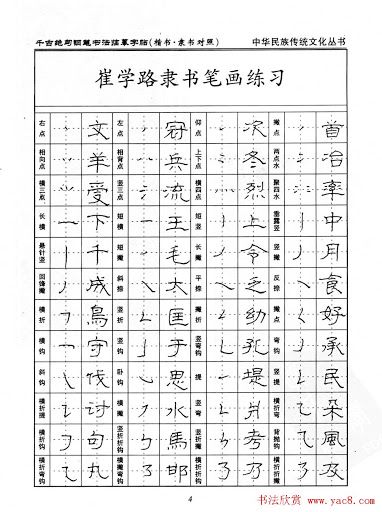 千古绝句钢笔书法临摹字帖(楷书·隶书对照)
中华民族传统文化丛书
崔学路隶书笔画练习
右点 文 左点 冠 仰点 次 撇点 首
相向点 羊 相背点 兵 上下点 冬 两点水 冶
横三点 爱 竖三点 流 横四点 烈 聚四水 率
长横 下 短横 王 短竖 上 垂露竖 中
悬针竖 千 短撇 毛 长撇 令 竖撇 月
回锋撇 成 斜捺 大 平捺 乏 反捺 食
横折 鳥 竖折 匡 撇折 幼 撇点 好
横钩 守 竖钩 于 竖弯钩 孔 弯钩 承
斜钩 伐 卧钩 思 提 堤 竖提 民
横折提 讨 横撇 水 竖弯 横折弯 朵
横折钩 句 竖折折钩 馬 竖折折 考 背抛钩 風
横折弯钩 丸 横撇弯钩 邯 乃 及
4
书法欣赏
www.yac8.com